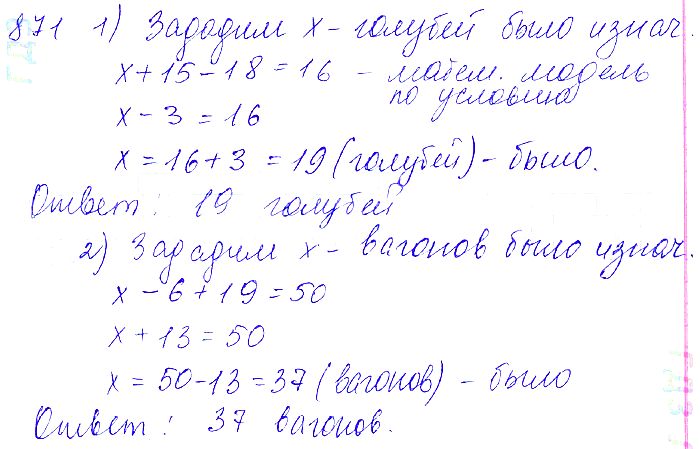 871 1) Зададим x - голубей было изнач.
x + 15 - 18 = 16 - матем. модель
по условию
x - 3 = 16
x = 16 + 3 = 19 (голубей) - было.
Ответ: 19 голубей
2) Зададим x - вагонов было изнач.
x - 6 + 19 = 50
x + 13 = 50
x = 50 - 13 = 37 (вагонов) - было
Ответ: 37 вагонов.